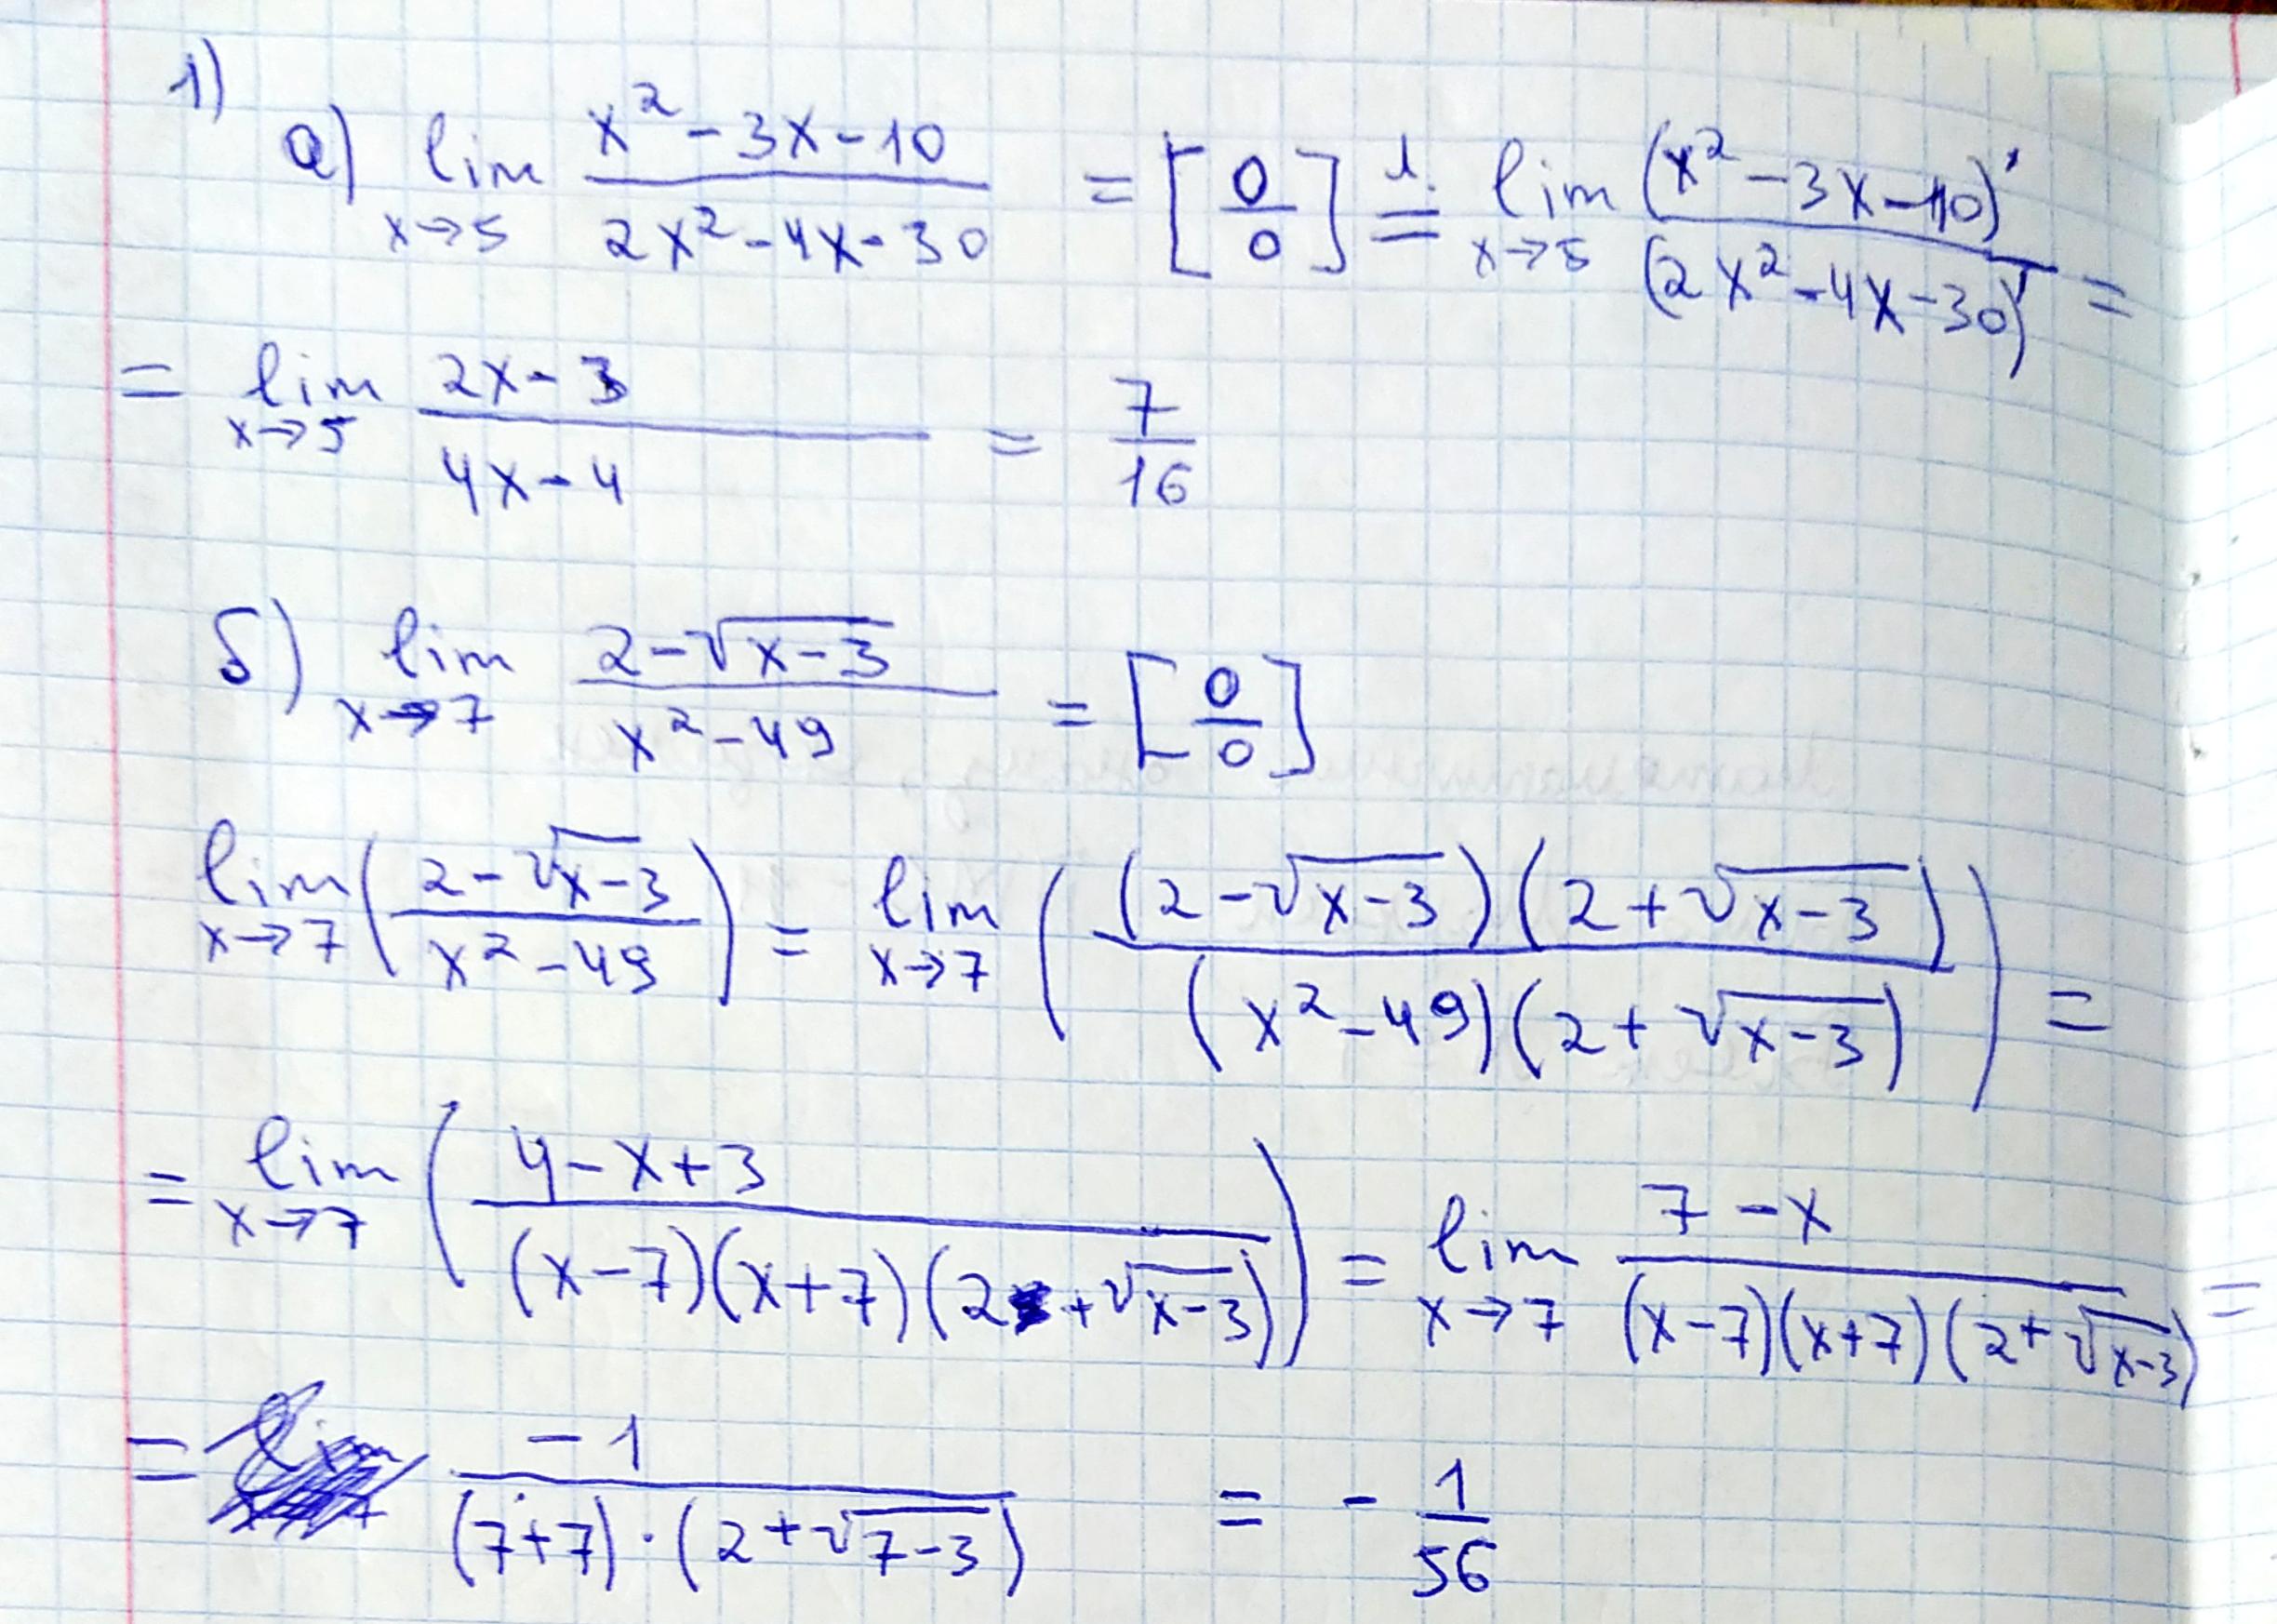 1)
а) lim x→5 (x² - 3x - 10)/(2x² - 4x - 30) = [0/0] л.= lim x→5 (x² - 3x - 10)'/(2x² - 4x - 30)' =
= lim x→5 (2x - 3)/(4x - 4) = 7/16
б) lim x→7 (2 - √(x-3))/(x² - 49) = [0/0]
lim x→7 ((2 - √(x-3))/(x² - 49)) = lim x→7 ((2 - √(x-3))(2 + √(x-3))/((x² - 49)(2 + √(x-3)))) =
= lim x→7 ((4 - x + 3)/((x-7)(x+7)(2 + √(x-3)))) = lim x→7 (7 - x)/((x-7)(x+7)(2 + √(x-3))) =
= -1/((7+7)·(2 + √(7-3))) = - 1/56